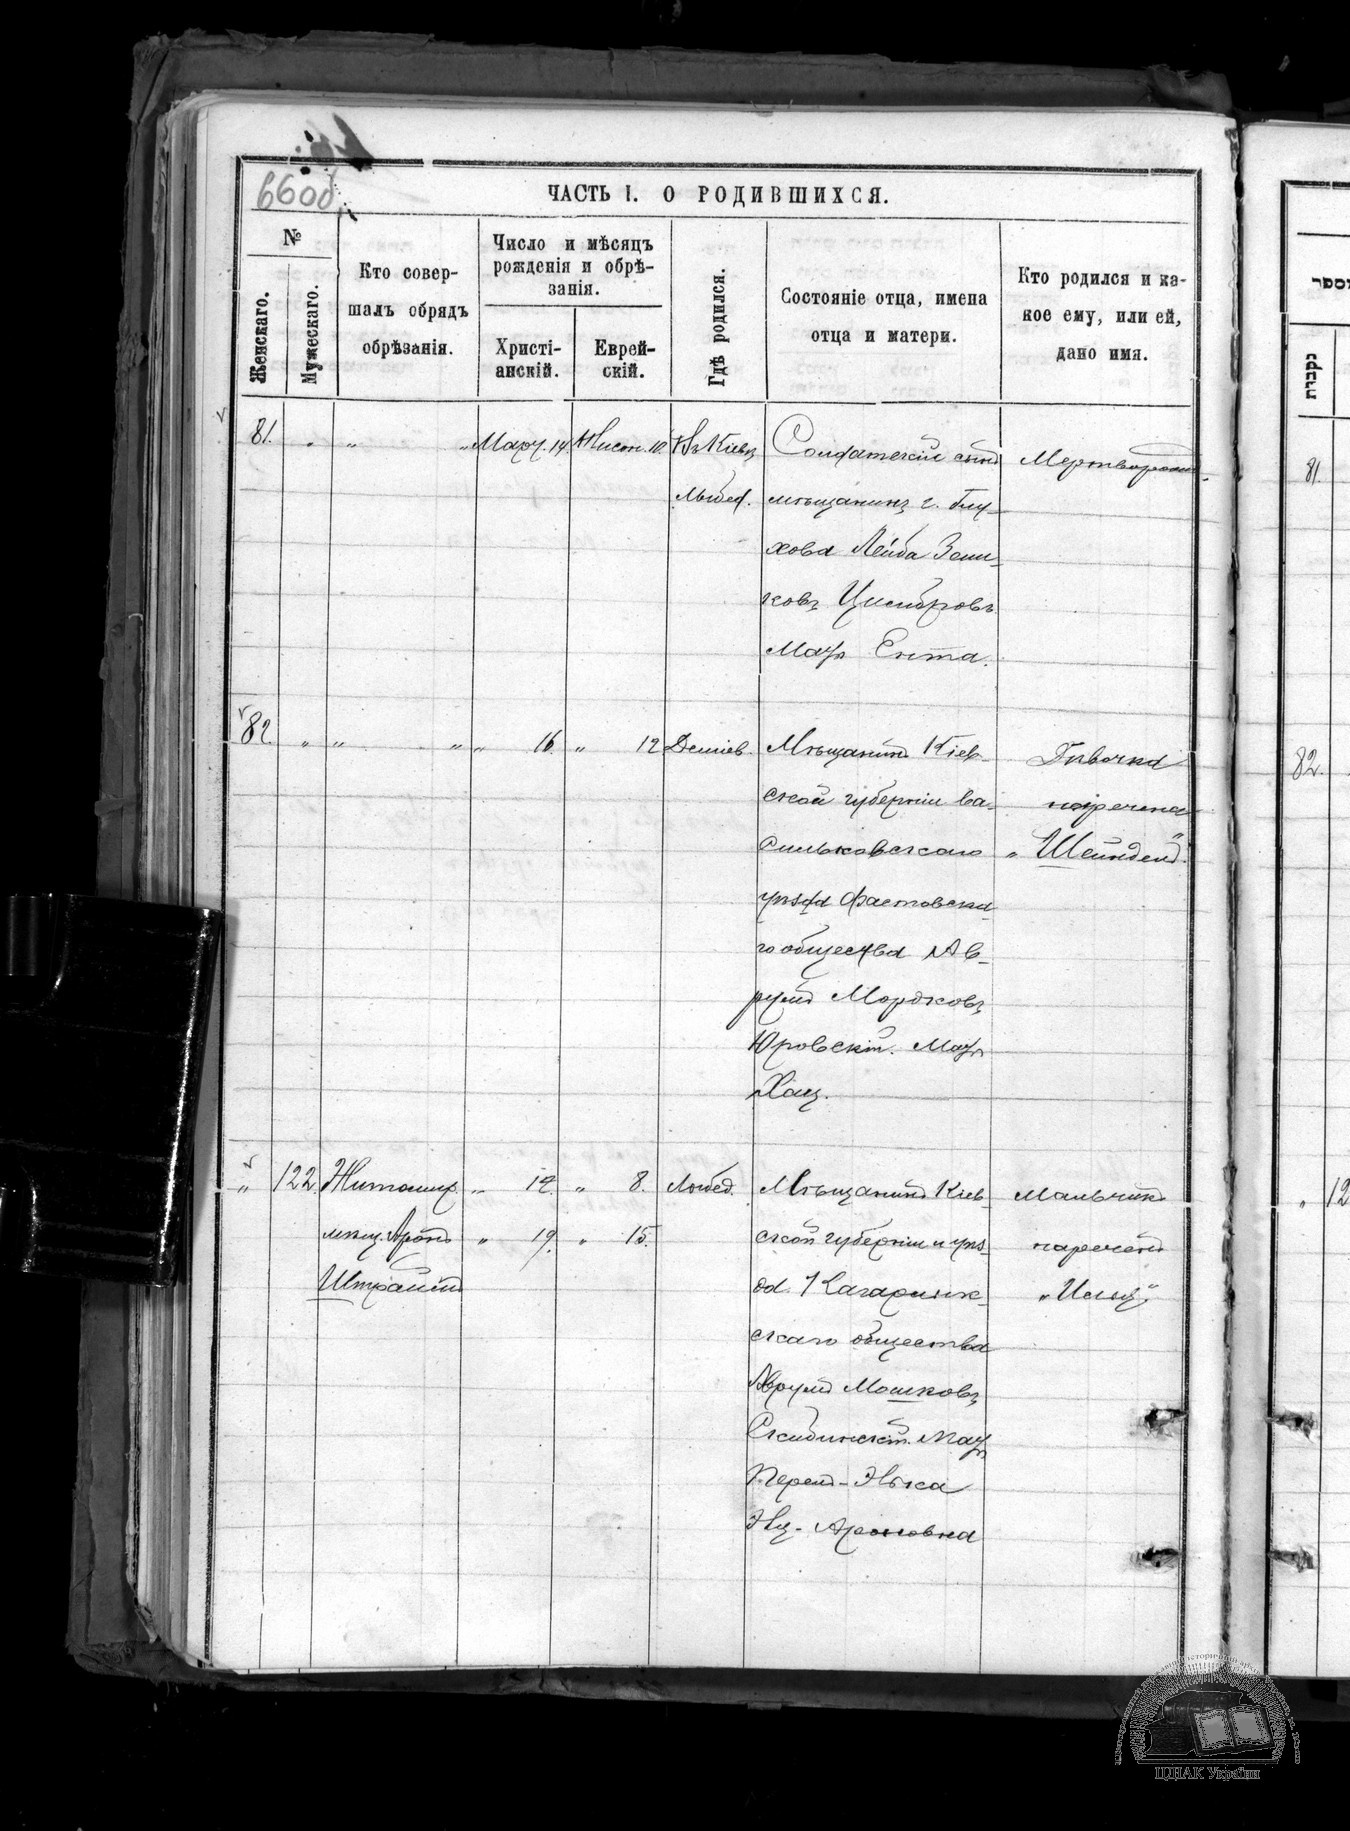 66об.
ЧАСТЬ I. О РОДИВШИХСЯ.
№
Женскаго.
Мужескаго.
Кто совер-
шалъ обрядъ
обрѣзанія.
Число и мѣсяцъ
рожденія и обрѣ-
занія.
Христі-
анскій.
Еврей-
скій.
Гдѣ родился.
Состояніе отца, имена
отца и матери.
Кто родился и ка-
кое ему, или ей,
дано имя.
81. " " " Март. 14. Нисон. 10. Въ Кіевѣ
Лыбед.
Солдатскій сынъ
мѣщанинъ г. Глу-
хова Лейба
Мать Ента.
82. " " " " 16. " 12 Деміев.
Мѣщанинъ Кіев-
ской губерніи Ва-
сильковскаго
уѣзда Фастовска-
го общества Ав-
румъ Мордковъ
Юровскій. Мать
Хая.
Дѣвочка
наречена
„Шейндель"
" 122. Житомир. " 14. " 8. Лыбед.
мѣщ. Аронъ " 19. " 15.
Мѣщанинъ Кіев-
ской губерніи и уѣз-
да. Кагарлык-
скаго общества
Аврумъ Мошковъ
Скибинскій. Мать
Перель-
Ароновна
Мальчикъ
нареченъ
מספר
נקבות
81.
82.
" 12
ЦДІАК України